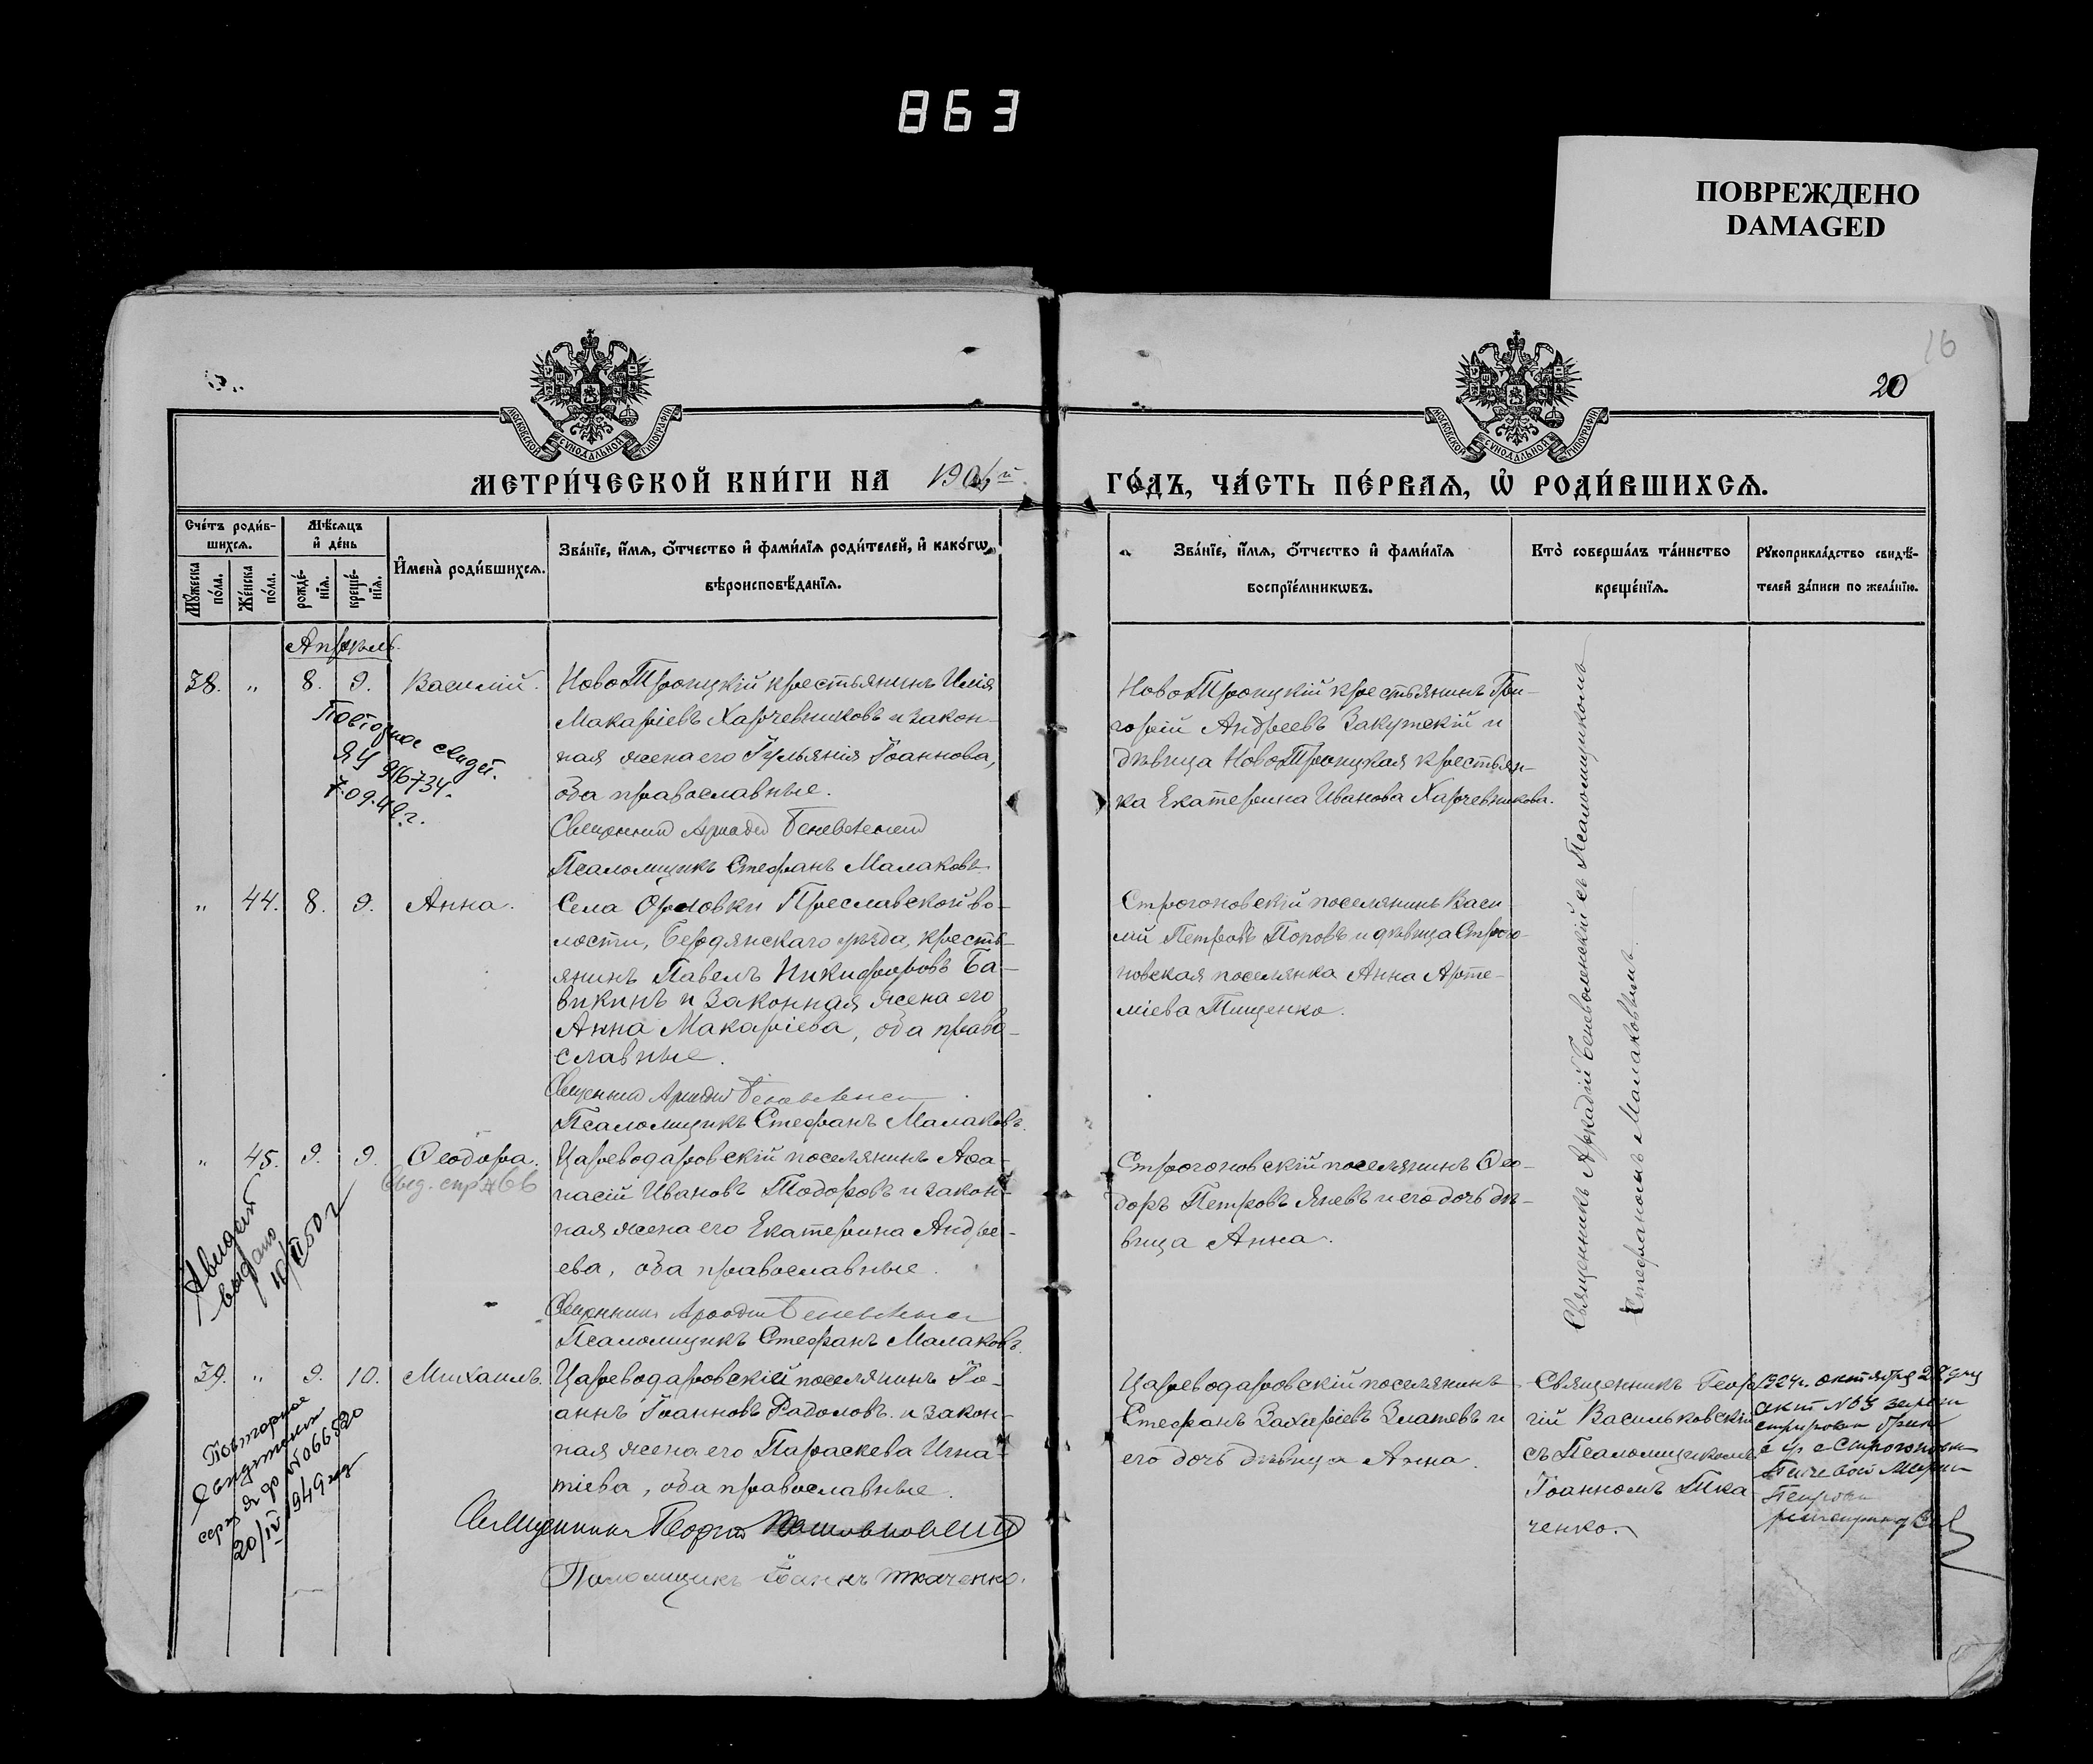 863
ПОВРЕЖДЕНО
DAMAGED
16
20
МОСКОВСКОЙ СѴНОДАЛЬНОЙ ТИПОГРАФІИ
МОСКОВСКОЙ СѴНОДАЛЬНОЙ ТИПОГРАФІИ
МЕТРИ́ЧЕСКОЙ КНИ́ГИ НА
ГО́ДЪ, ЧА́СТЬ ПЕ́РВАѦ, Ѡ҆ РОДИ́ВШИХСѦ.
Сче́тъ роди́в-
шихсѧ.
Мѹ́жеска
по́ла.
Же́нска
по́ла.
Мѣ́сѧцъ
и҆ де́нь
рожде́-
нїѧ.
креще́-
нїѧ.
И҆мена̀ роди́вшихсѧ.
Зва́нїе, и҆́мѧ, ѻ҆́тчество и҆ фами́лїѧ роди́телей, и҆ како́гѡ
вѣроисповѣ́данїѧ.
Зва́нїе, и҆́мѧ, ѻ҆́тчество и҆ фами́лїѧ
воспрїе́мникѡвъ.
Кто̀ соверша́лъ та́инство
креще́нїѧ.
Рꙋкоприкла́дство свидѣ́-
телей за́писи по жела́нїю.
Апрѣль.
38. " 8. 9. Василій.
НовоТроицкій крестьянинъ Илія
Макаріевъ Харчевниковъ и закон-
ная жена его Іульянія Іоаннова,
оба православные.
Священник Аркадій Беневоленскій
Псаломщикъ Стефанъ Малаковъ
НовоТроицкій крестьянинъ Гри-
горій Андреевъ Закутскій и
дѣвица НовоТроицкая крестьян-
ка Екатерина Иванова Харчевникова.
Повторное свидет.
ЯЦ 916734.
7.09.49 г.
" 44. 8. 9. Анна.
Села Орловки Преславской во-
лости, Бердянскаго уѣзда, кресть-
янинъ Павелъ Никифоровъ Ба-
викинъ и законная жена его
Анна Макаріева, оба право-
славные.
Священник Аркадій Беневоленскій
Псаломщикъ Стефанъ Малаковъ.
Строгоновскій поселянинъ Васи
лій Петровъ Поповъ и дѣвица Строго-
новская поселянка Анна Арте-
міева Тищенко.
" 45. 9. 9. Ѳеодора.
Свид. спр #66
Цареводаровскій поселянинъ Аѳа-
насій Ивановъ Тодоровъ и закон-
ная жена его Екатерина Андре-
ева, оба православные.
Священник Аркадій Беневоленскій
Псаломщикъ Стефанъ Малаковъ.
Строгоновскій поселянинъ Ѳео-
доръ Петровъ Яневъ и его дочь дѣ-
вица Анна.
выдано
50 г
Священникъ Аркадій Беневоленскій съ Псаломщикомъ
Стефаномъ Малаковымъ.
39. " 9. 10. Михаилъ.
Цареводаровскій поселянинъ Іо-
аннъ Іоанновъ Радоловъ и закон-
ная жена его Параскева Игна-
тіева, оба православные.
Священник Георгій Васильковскій
Псаломщикъ Іоаннъ Ткаченко.
Цареводаровскій поселянинъ
Стефанъ Захаріевъ Златевъ и
его дочь дѣвица Анна.
Священникъ Геор
гій Васильковскій
съ Псаломщикомъ
Іоанномъ Тка
ченко.
1924 г. октября 27 дня
акт №
Повторное
серия ЯФ №066520
20/IV 1949 год